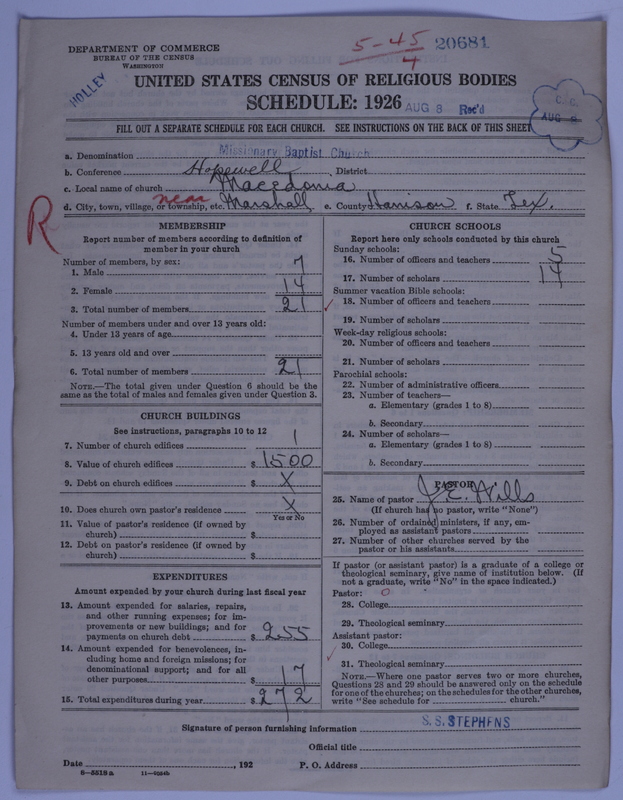 5-45
4
20681
DEPARTMENT OF COMMERCE
BUREAU OF THE CENSUS
WASHINGTON
HOLLEY
UNITED STATES CENSUS OF RELIGIOUS BODIES
SCHEDULE: 1926
AUG 8 Rec'd
C.G.
AUG 8
FILL OUT A SEPARATE SCHEDULE FOR EACH CHURCH. SEE INSTRUCTIONS ON THE BACK OF THIS SHEET
a. Denomination Missionary Baptist Church
b. Conference Hopewell, District
c. Local name of church Macedonia
d. City, town, village, or township, etc. near Marshall e. County Harrison f. State Tex.
R
MEMBERSHIP
Report number of members according to definition of
member in your church
Number of members, by sex:
1. Male 7
2. Female 14
3. Total number of members 21
Number of members under and over 13 years old:
4. Under 13 years of age
5. 13 years old and over
6. Total number of members 21
NOTE.—The total given under Question 6 should be the
same as the total of males and females given under Question 3.
CHURCH BUILDINGS
See instructions, paragraphs 10 to 12
7. Number of church edifices 1
8. Value of church edifices $ 1500
9. Debt on church edifices $ X
10. Does church own pastor's residence X
Yes or No
11. Value of pastor's residence (if owned by
church) $
12. Debt on pastor's residence (if owned by
church) $
EXPENDITURES
Amount expended by your church during last fiscal year
13. Amount expended for salaries, repairs,
and other running expenses; for im-
provements or new buildings; and for
payments on church debt $ 255
14. Amount expended for benevolences, in-
cluding home and foreign missions; for
denominational support; and for all
other purposes $ 17
15. Total expenditures during year $ 272
CHURCH SCHOOLS
Report here only schools conducted by this church
Sunday schools:
16. Number of officers and teachers 5
17. Number of scholars 14
Summer vacation Bible schools:
18. Number of officers and teachers
19. Number of scholars
Week-day religious schools:
20. Number of officers and teachers
21. Number of scholars
Parochial schools:
22. Number of administrative officers
23. Number of teachers—
a. Elementary (grades 1 to 8)
b. Secondary
24. Number of scholars—
a. Elementary (grades 1 to 8)
b. Secondary
PASTOR
25. Name of pastor J. E. Wills
(If church has no pastor, write "None")
26. Number of ordained ministers, if any, em-
ployed as assistant pastors
27. Number of other churches served by the
pastor or his assistants
If pastor (or assistant pastor) is a graduate of a college or
theological seminary, give name of institution below. (If
not a graduate, write "No" in the space indicated.)
Pastor: 0
28. College
29. Theological seminary
Assistant pastor:
30. College
31. Theological seminary
NOTE.—Where one pastor serves two or more churches,
Questions 28 and 29 should be answered only on the schedule
for one of the churches; on the schedules for the other churches,
write "See schedule for church."
Signature of person furnishing information S. S. STEPHENS
Official title
Date , 192 P. O. Address
8—5518 a 11—9224b